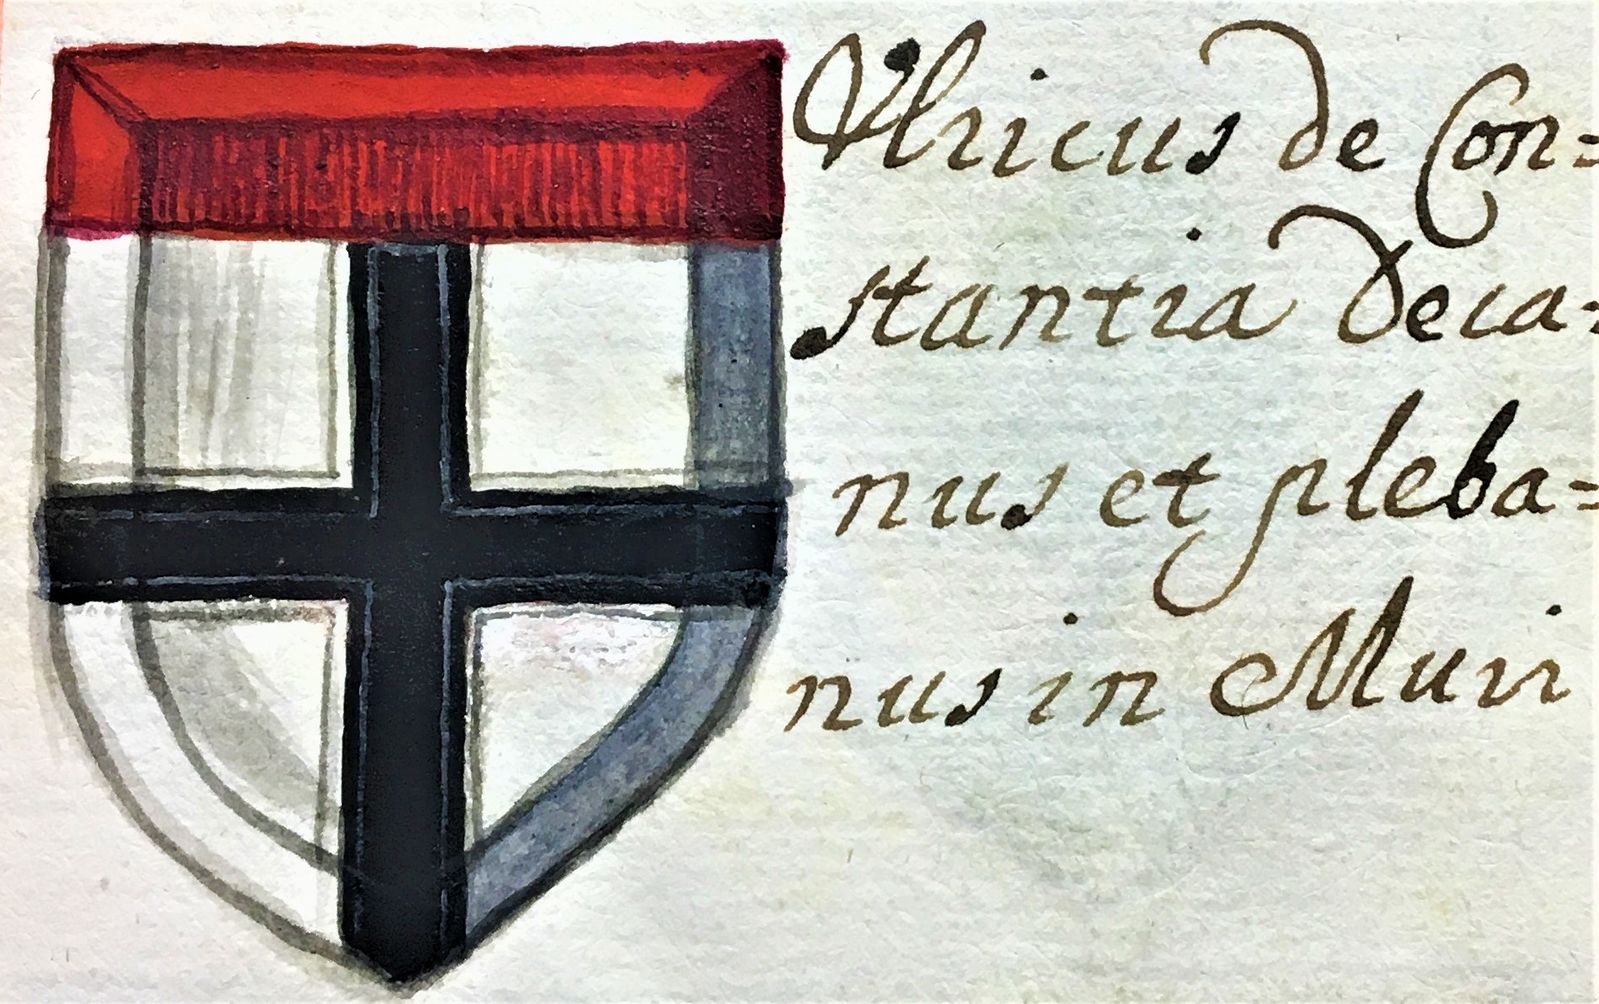 Vlricus de Con=
stantia Deca=
nus et pleba=
nus in Muri